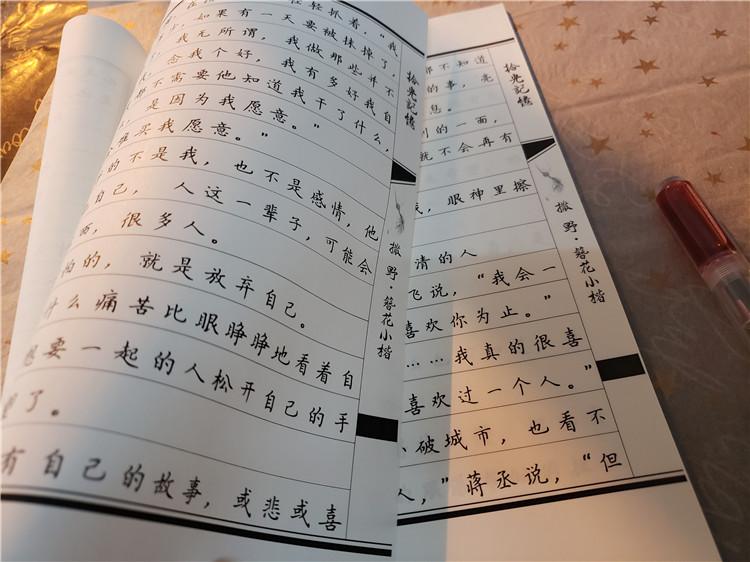 轻轻抓着，“我
如果有一天要被抹掉了，
我无所谓，我做那些并不
念我个好，我有多好我自
不需要他知道我干了什么，
是因为我愿意。”
买我愿意。”
的不是我，也不是感情，他
自己，人这一辈子，可能会
很多人。
怕的，就是放弃自己。
什么痛苦比眼睁睁地看着自
想要一起的人松开自己的手
了。
有自己的故事，或悲或喜
拾光记忆
撒野·簪花小楷
不知道
的事，亮
息。
别的一面，
就不会再有
眼神里擦
清的人
飞说，“我会一
喜欢你为止。”
……我真的很喜
喜欢过一个人。”
破城市，也看不
人，”蒋丞说，“但
拾光记忆
撒野·簪花小楷